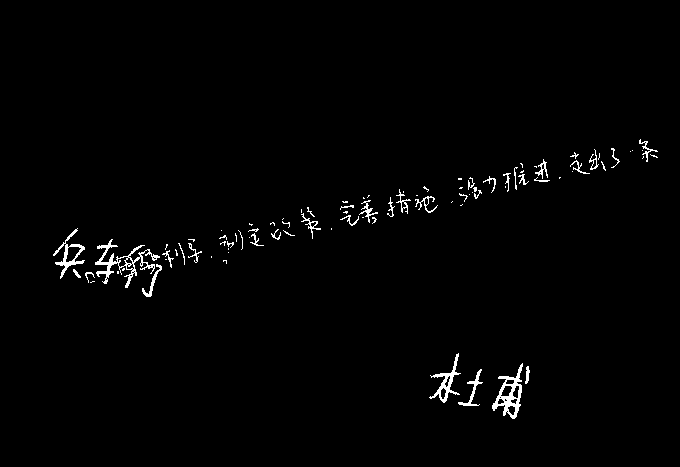 兵车行
利导，制定政策，完善措施，强力推进，走出了一条
杜甫